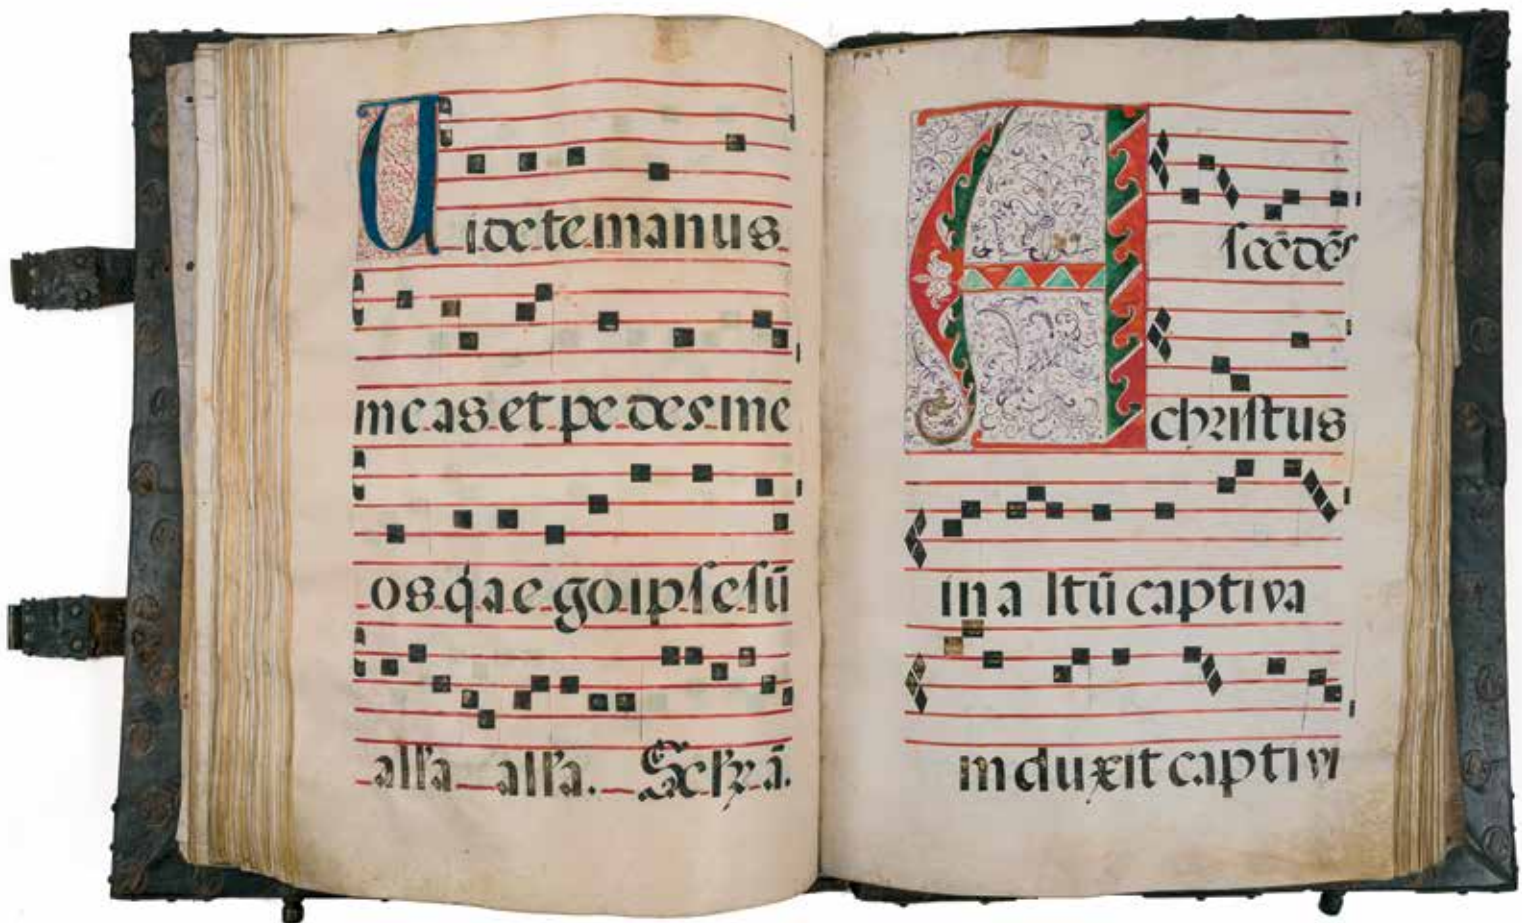 Videte manus
meas et pedes me
os q̃a ego ipse sũ
alľa alľa. Sclꝝ ã.
Ascẽdẽs
christus
in altũ captiva
m duxit captivi